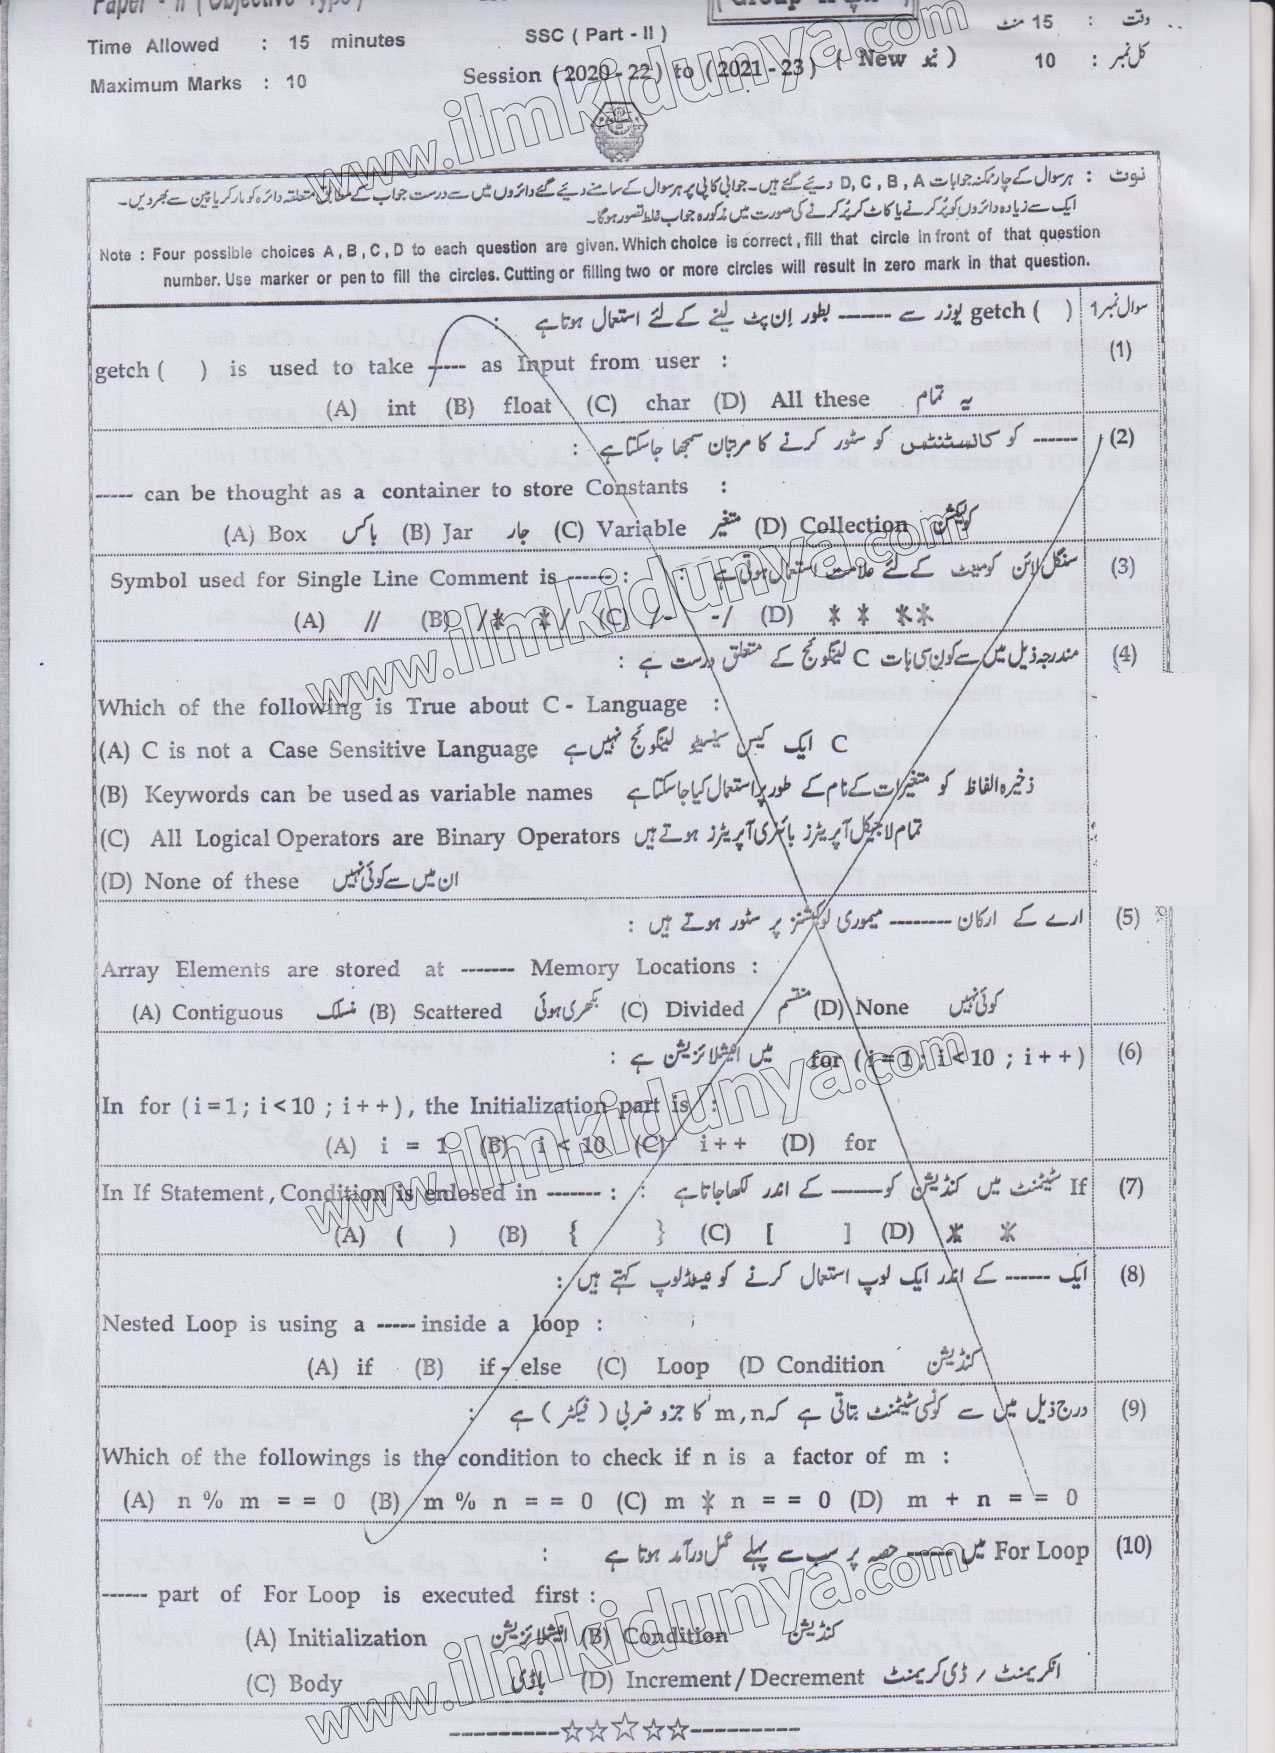 Paper - II ( Objective Type )
Time Allowed : 15 minutes
SSC ( Part - II )
وقت : 15 منٹ
Maximum Marks : 10
Session ( 2020 - 22 ) to ( 2021 - 23 ) ( New نیو )
کل نمبر : 10
نوٹ : ہر سوال کے چار ممکنہ جوابات D , C , B , A دیئے گئے ہیں۔ جوابی کاپی پر ہر سوال کے سامنے دیئے گئے دائروں میں سے درست جواب کے مطابق متعلقہ دائرہ کو مارکر یا پین سے بھر دیں۔
ایک سے زیادہ دائروں کو پُر کرنے یا کاٹ کر پُر کرنے کی صورت میں مذکورہ جواب غلط تصور ہوگا۔
Note : Four possible choices A , B , C , D to each question are given. Which choice is correct , fill that circle in front of that question
number. Use marker or pen to fill the circles. Cutting or filling two or more circles will result in zero mark in that question.
سوال نمبر 1 getch ( ) یوزر سے ------- بطور اِن پٹ لینے کے لئے استعمال ہوتا ہے :
(1)
getch ( ) is used to take ----- as Input from user :
(A) int (B) float (C) char (D) All these یہ تمام
(2) ------ کو کانسٹنٹس کو سٹور کرنے کا مرتبان سمجھا جاسکتا ہے :
----- can be thought as a container to store Constants :
(A) Box باکس (B) Jar جار (C) Variable متغیر (D) Collection کولیکشن
Symbol used for Single Line Comment is ------ : سنگل لائن کومینٹ کے لئے علامت استعمال ہوتی ہے : (3)
(A) // (B) /* */ (C) /- -/ (D) * * **
(4) مندرجہ ذیل میں سے کون سی بات C لینگوئج کے متعلق درست ہے :
Which of the following is True about C - Language :
(A) C is not a Case Sensitive Language C ایک کیس سینسیٹو لینگوئج نہیں ہے
(B) Keywords can be used as variable names ذخیرہ الفاظ کو متغیرات کے نام کے طور پر استعمال کیا جاسکتا ہے
(C) All Logical Operators are Binary Operators تمام لاجیکل آپریٹرز بائنری آپریٹرز ہوتے ہیں
(D) None of these ان میں سے کوئی نہیں
(5) ارے کے ارکان -------- میموری لوکیشنز پر سٹور ہوتے ہیں :
Array Elements are stored at ------- Memory Locations :
(A) Contiguous منسلک (B) Scattered بکھری ہوئی (C) Divided منقسم (D) None کوئی نہیں
(6) for ( i = 1 ; i < 10 ; i + + ) میں انیشلائزیشن ہے :
In for ( i = 1 ; i < 10 ; i + + ) , the Initialization part is :
(A) i = 1 (B) i < 10 (C) i + + (D) for
In If Statement , Condition is enlosed in ------- : If سٹیٹمنٹ میں کنڈیشن کو ------- کے اندر لکھا جاتا ہے : (7)
(A) ( ) (B) { } (C) [ ] (D) * *
(8) ایک ------ کے اندر ایک لوپ استعمال کرنے کو نیسٹڈ لوپ کہتے ہیں :
Nested Loop is using a ----- inside a loop :
(A) if (B) if - else (C) Loop (D Condition کنڈیشن
(9) درج ذیل میں سے کونسی سٹیٹمنٹ بتاتی ہے کہ m , n کا جزو ضربی ( فیکٹر ) ہے :
Which of the followings is the condition to check if n is a factor of m :
(A) n % m = = 0 (B) m % n = = 0 (C) m * n = = 0 (D) m + n = = 0
(10) For Loop میں ------ حصہ پر سب سے پہلے عمل درآمد ہوتا ہے :
------ part of For Loop is executed first :
(A) Initialization انیشلائزیشن (B) Condition کنڈیشن
(C) Body باڈی (D) Increment / Decrement انکریمنٹ / ڈی کریمنٹ
www.ilmkidunya.com
www.ilmkidunya.com
www.ilmkidunya.com
www.ilmkidunya.com